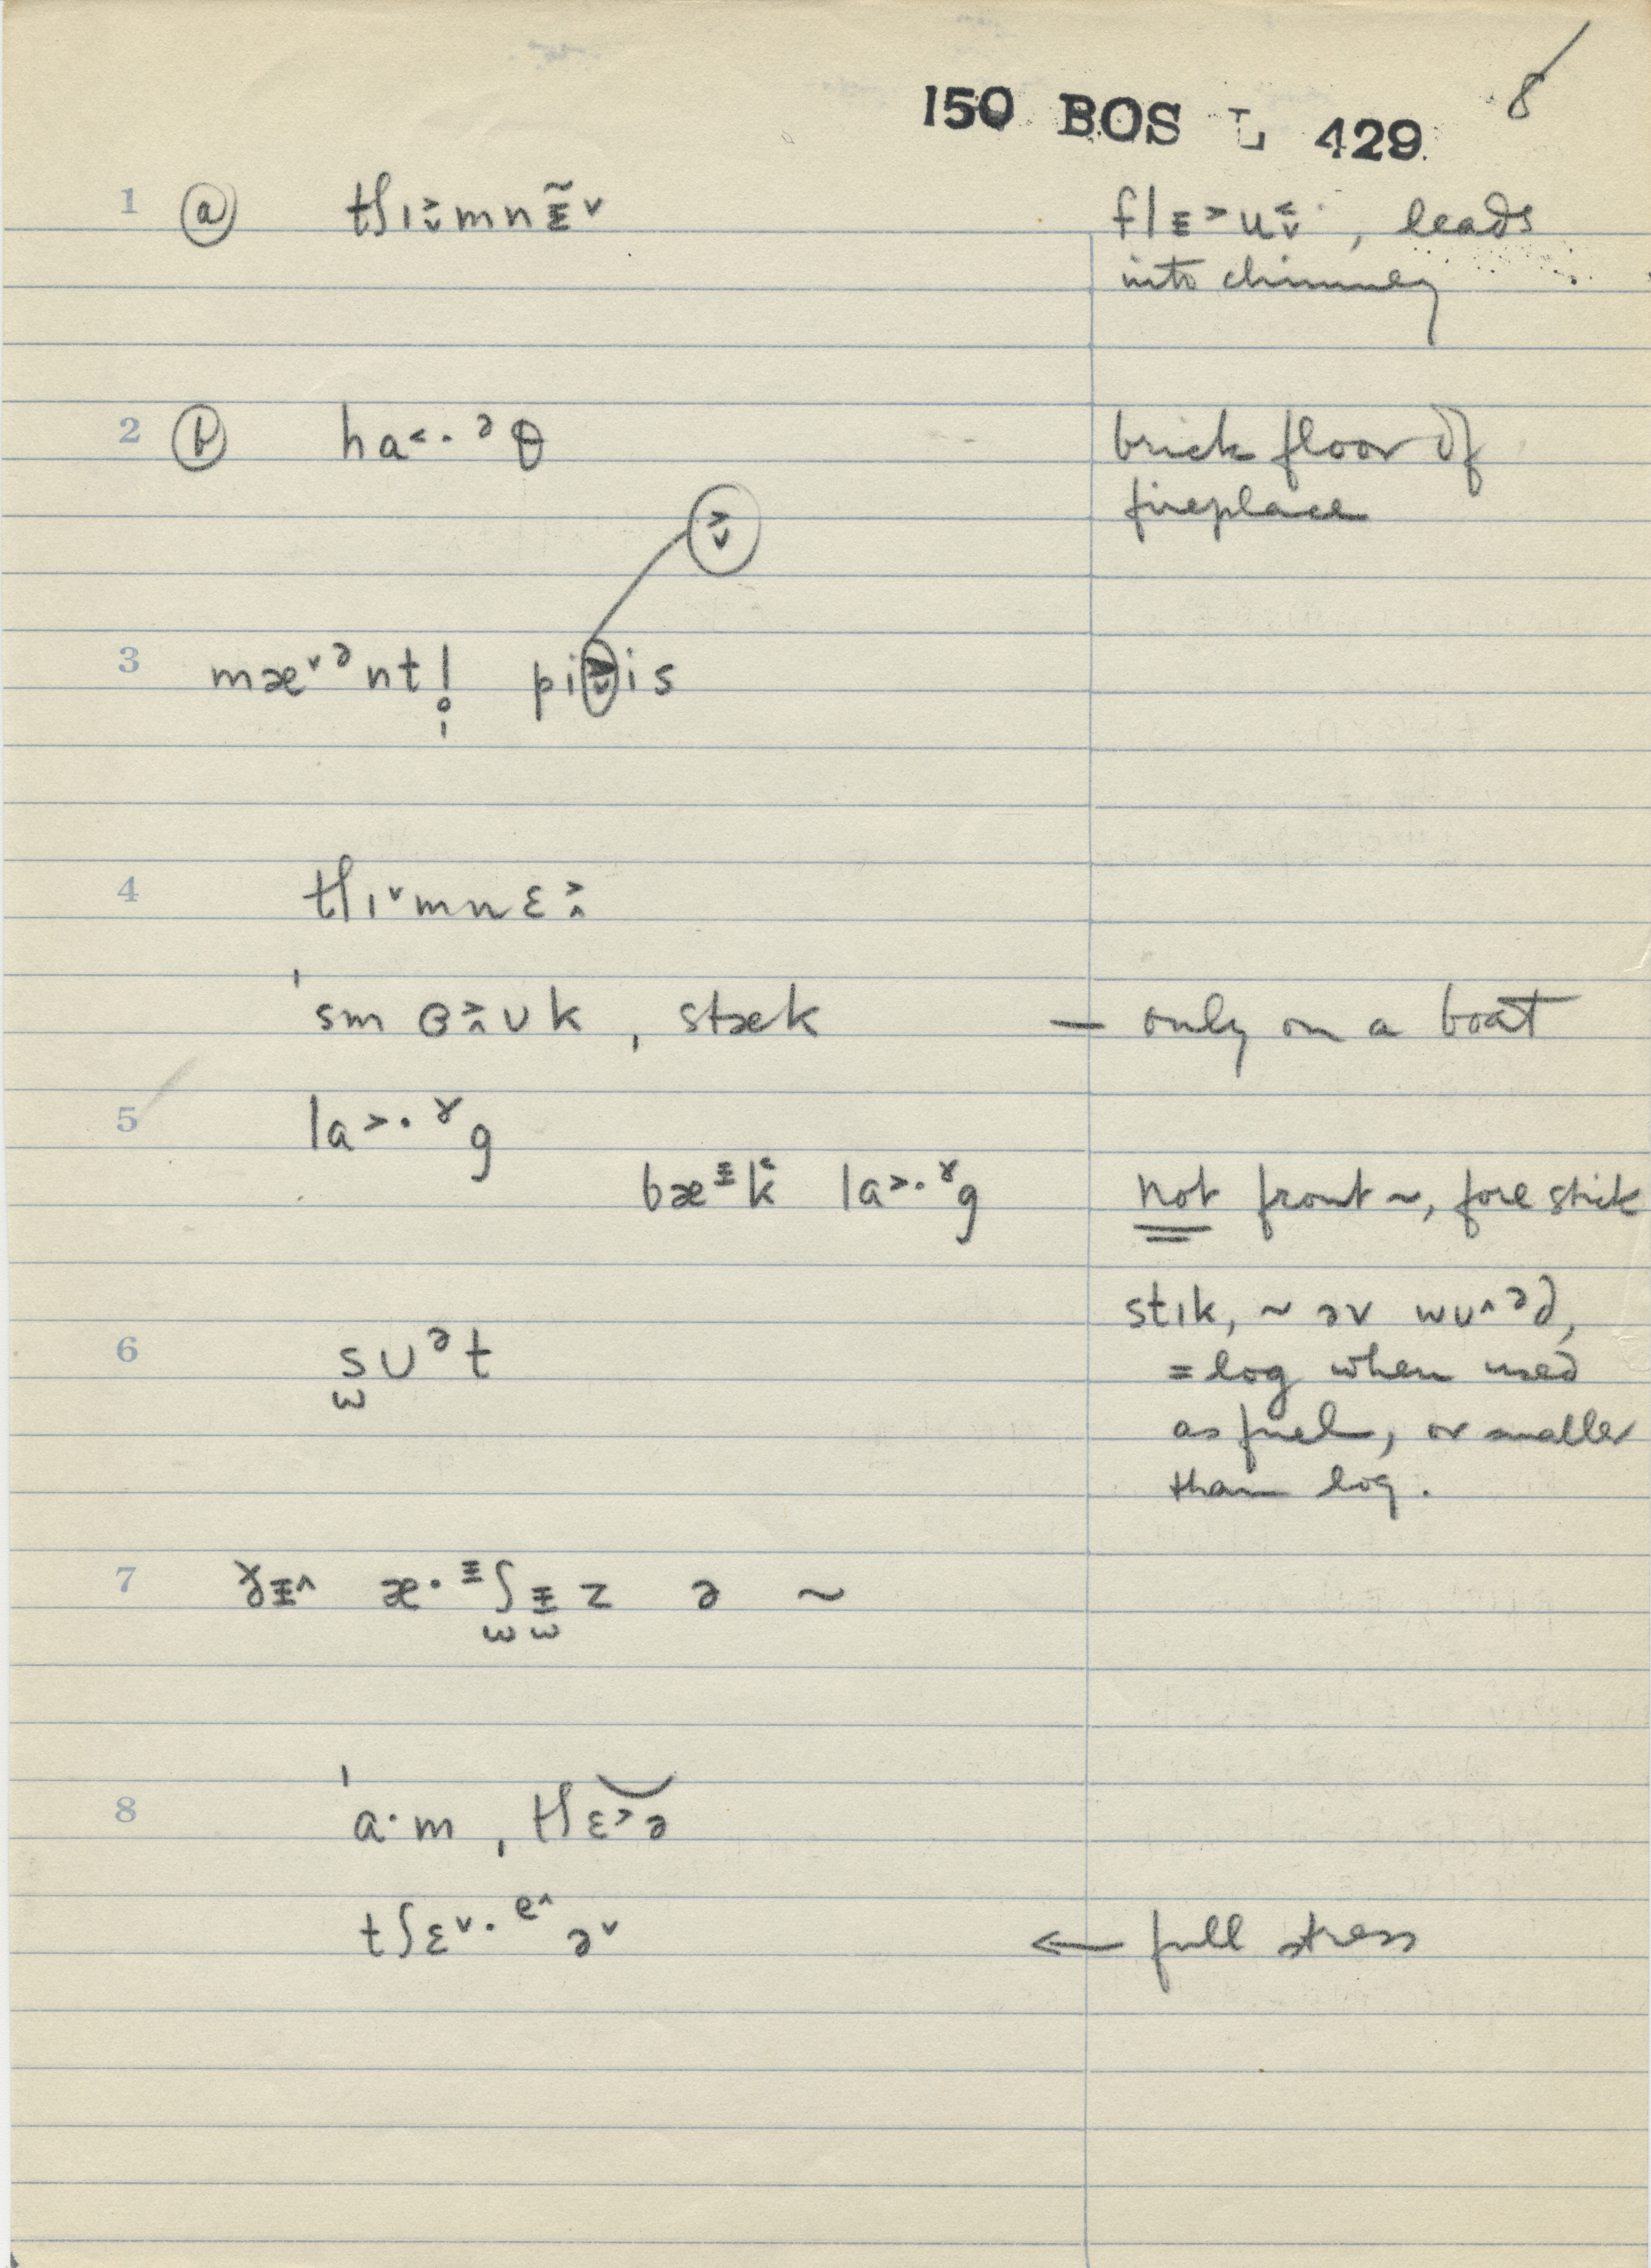 150 BOS L 429. 8
1 ⓐ tʃɪ˃˅mnɪ̵̃˅ flɪ̵˃u˂˅·, leads
into chimney
2 ⓑ ha˂·ᵊθ brick floor of
fireplace
˃˅
3 mæ˅ᵊnt! pi˃˅is
4 tʃɪ˅mnɛ˃˄
ˈsmɵ˃˄ʊkˌstæk — only on a boat
5 la˃·ˠg
bæᶤk˂ la˃·ˠg not front ~, fore stick
stɪk, ~ əv wʊ˄ᵊd,
6 sʊᵊt = log when used
as fuel, or smaller
than log.
7 ðɨ˄ æ·ᶤʃɨz ə ~
8 ˈa·mˌtʃɛ˃ə
tʃɛ˅·ᵉ˄ə˅ ← full stress